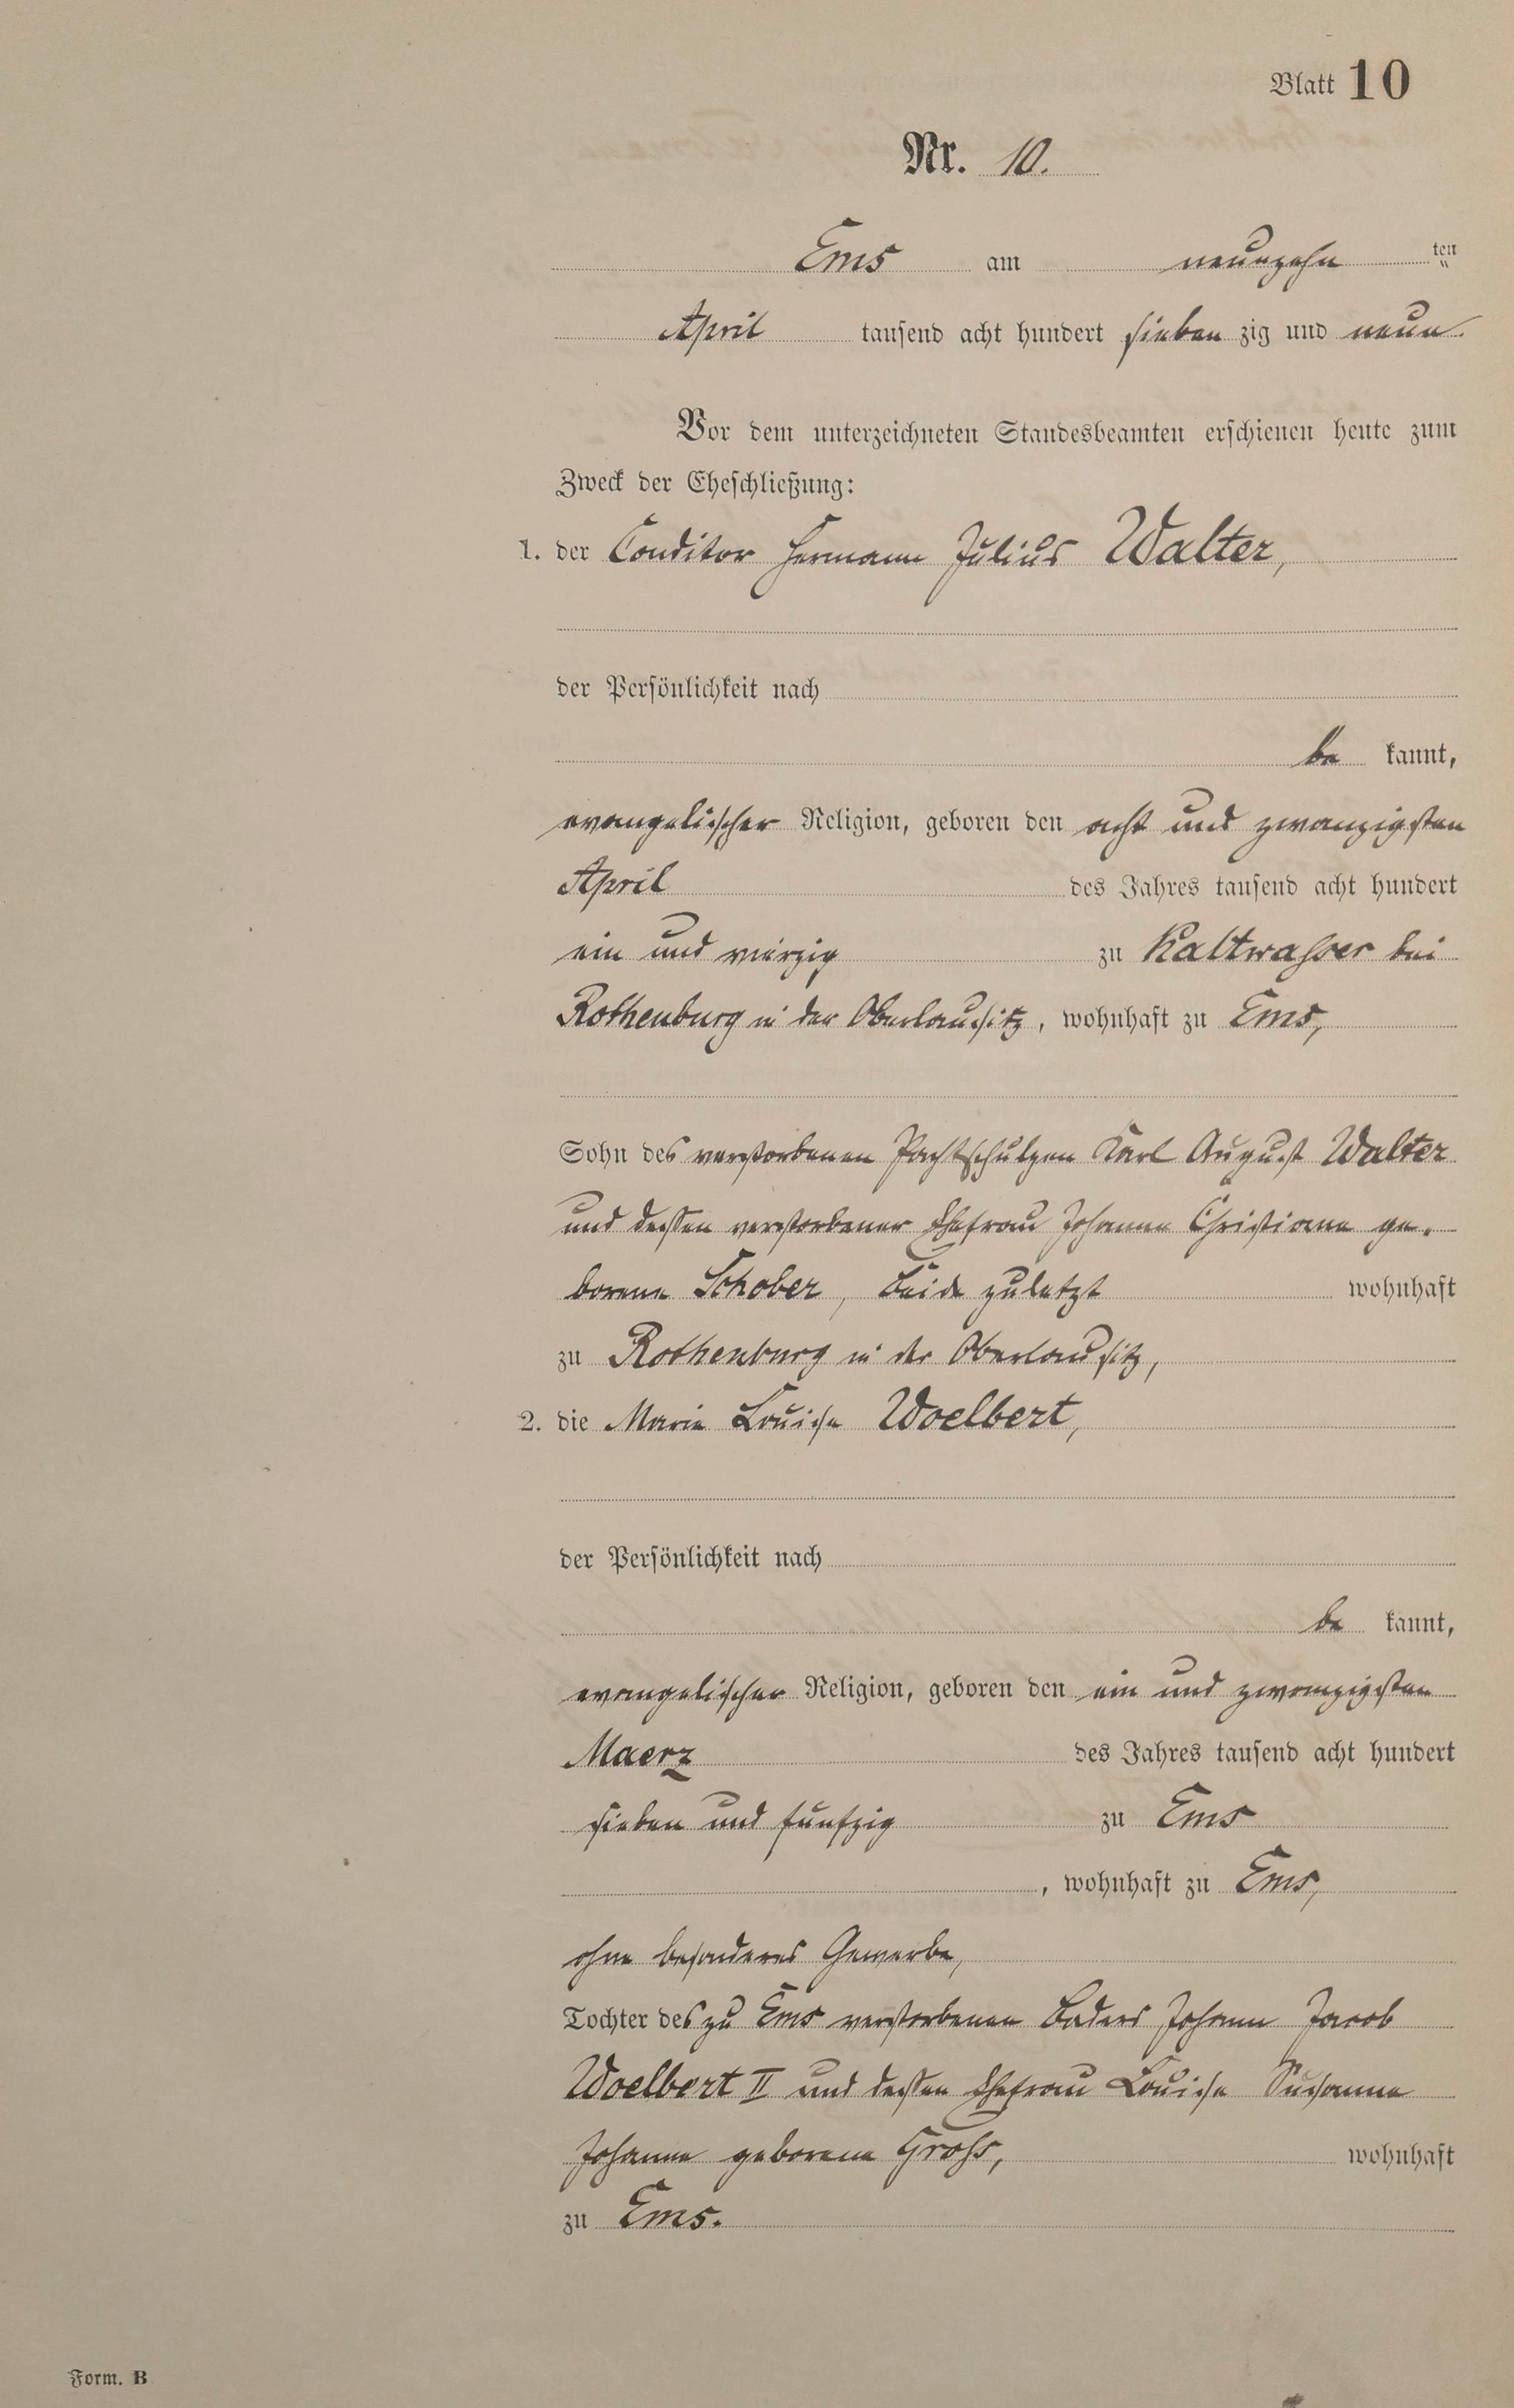 Blatt 10
Nr. 10.
Ems am neunzehn ten
April tausend acht hundert sieben zig und neun.
Vor dem unterzeichneten Standesbeamten erschienen heute zum
Zweck der Eheschließung:
1. der Conditor Hermann Julius Walter,
der Persönlichkeit nach
be kannt,
evangelischer Religion, geboren den acht und zwanzigsten
April des Jahres tausend acht hundert
ein und vierzig zu Kaltwasser bei
Rothenburg in der Oberlausitz, wohnhaft zu Ems,
Sohn des verstorbenen Pachtschulzen Karl August Walter
und dessen verstorbener Ehefrau Johanne Christiane ge-
borene Schober, Beide zuletzt wohnhaft
zu Rothenburg in der Oberlausitz,
2. die Marie Louise Woelbert,
der Persönlichkeit nach
be kannt,
evangelischer Religion, geboren den ein und zwanzigsten
Maerz des Jahres tausend acht hundert
sieben und fünfzig zu Ems
, wohnhaft zu Ems,
ohne besonderes Gewerbe,
Tochter des zu Ems verstorbenen Baders Johann Jacob
Woelbert II und dessen Ehefrau Louise Susanne
Johanne geborene Groß, wohnhaft
zu Ems.
Form. B